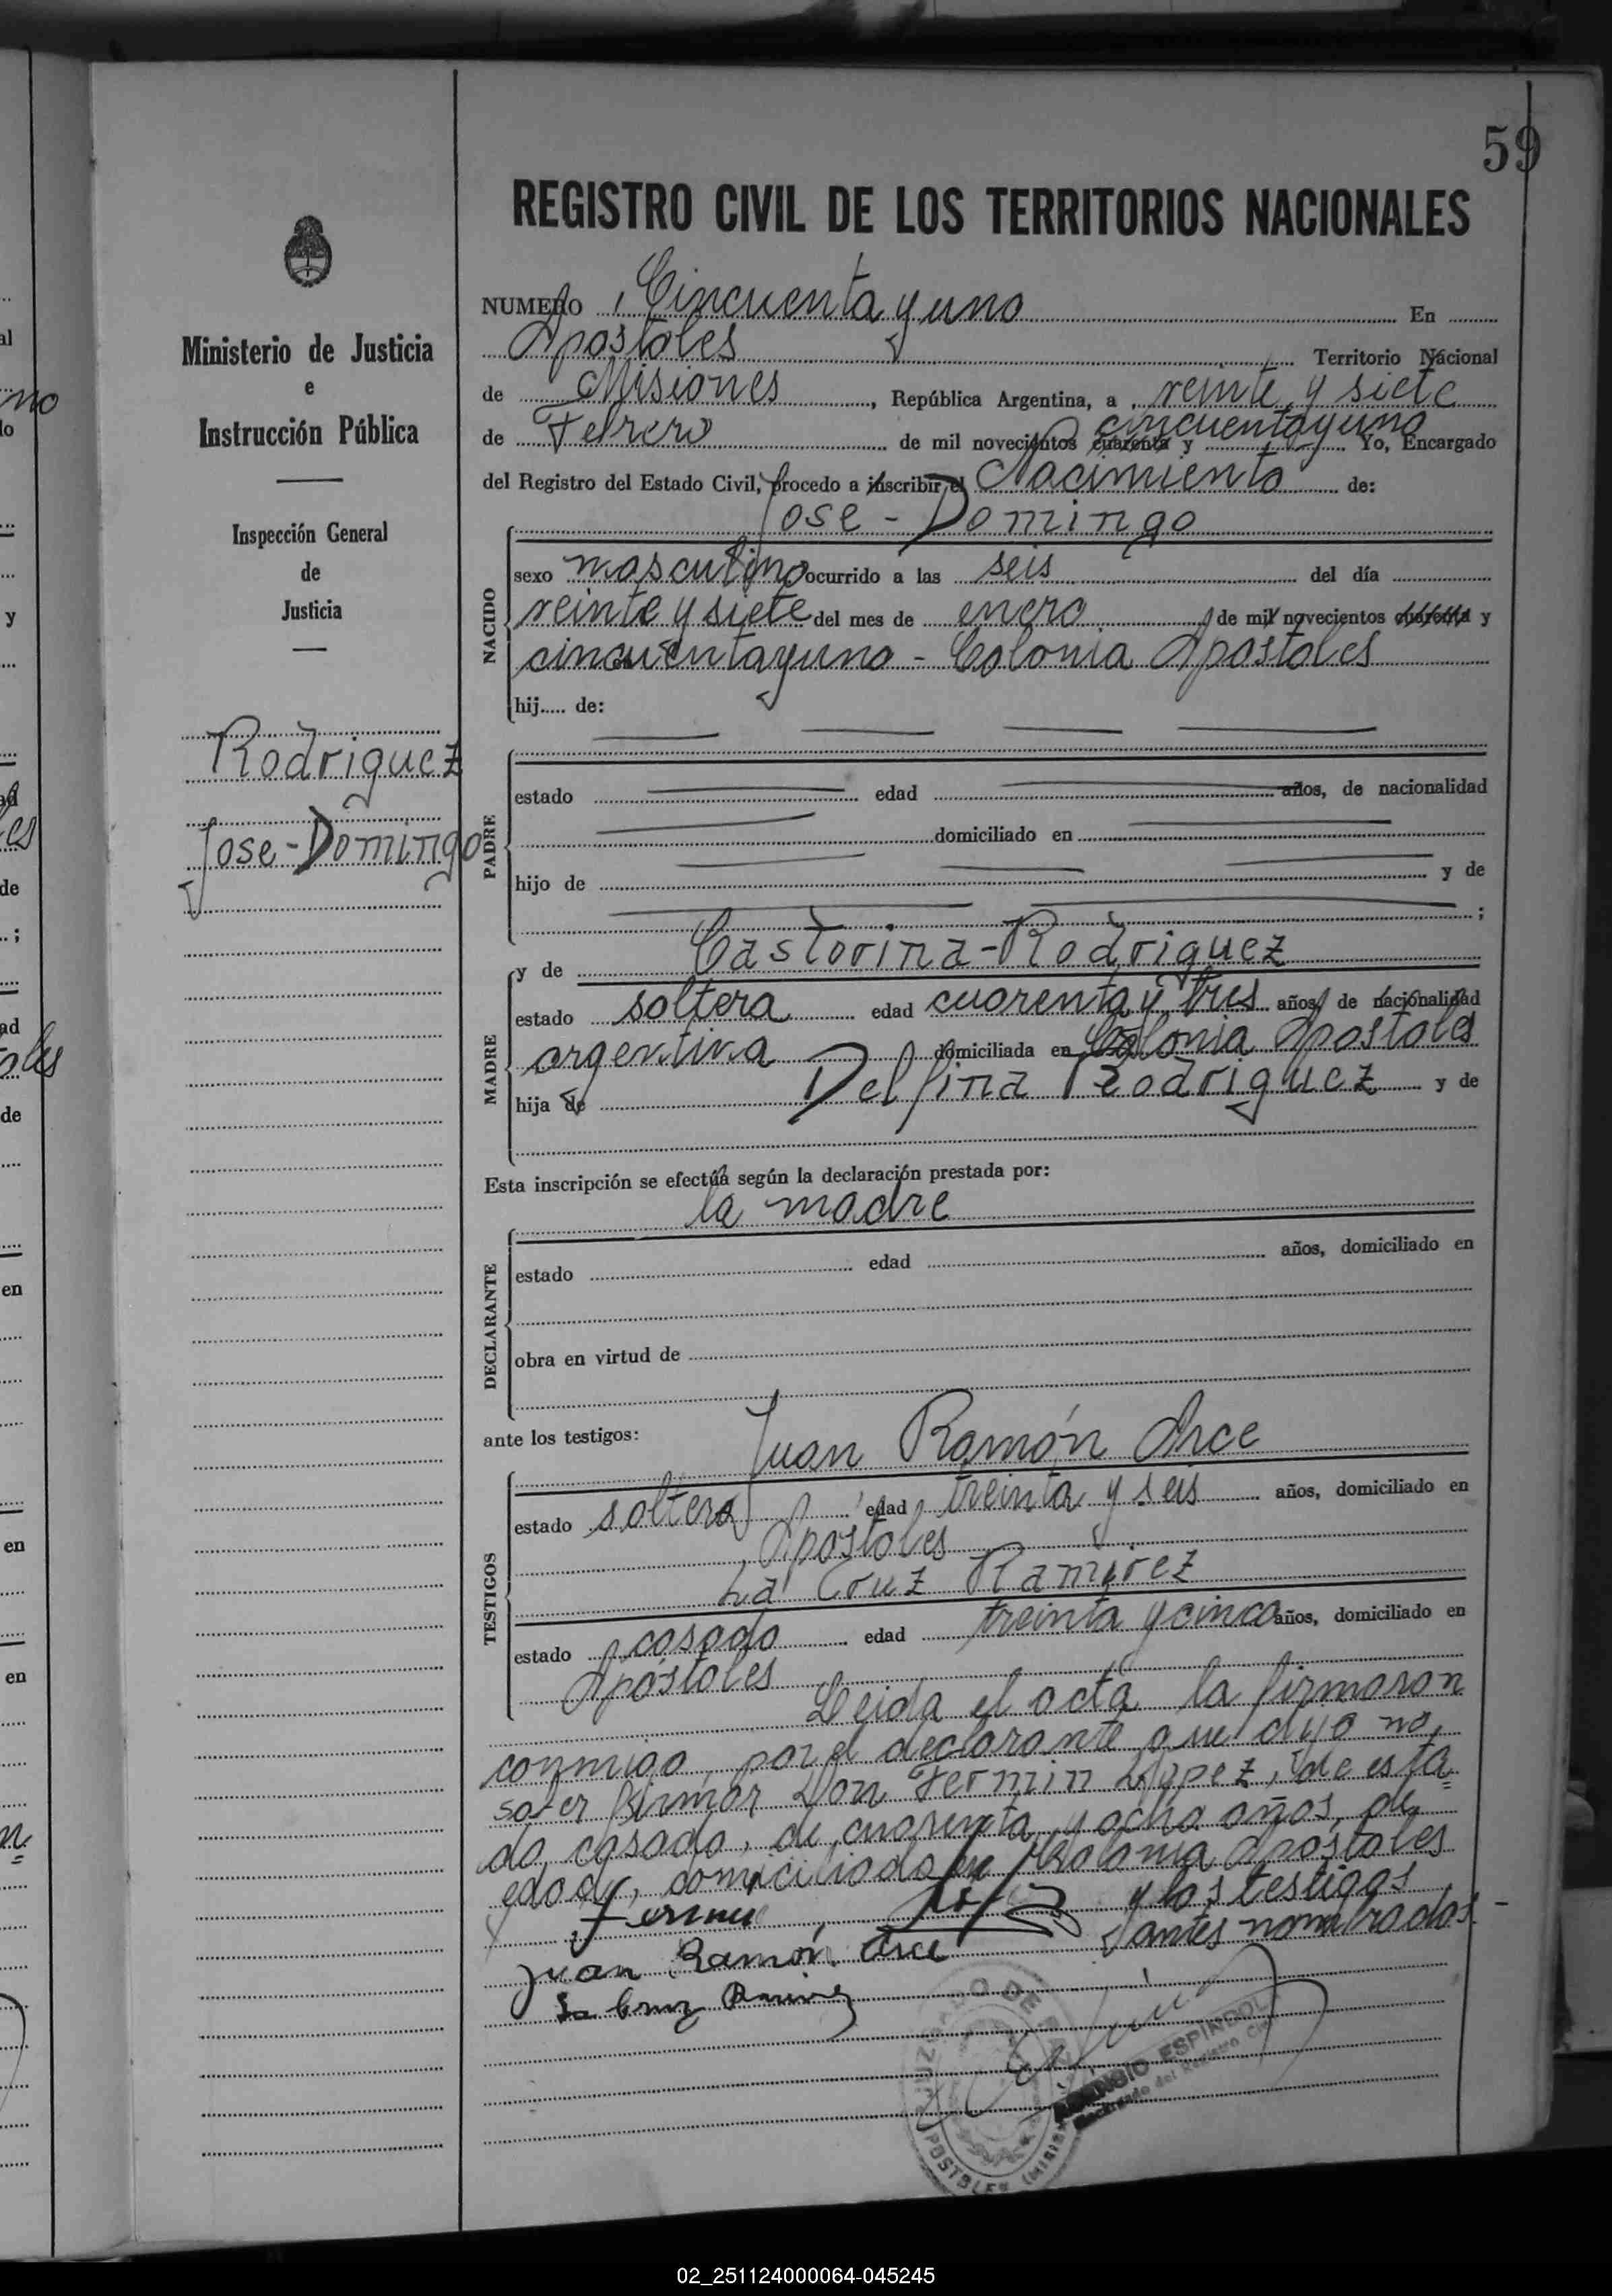 59
REGISTRO CIVIL DE LOS TERRITORIOS NACIONALES
Ministerio de Justicia
e
Instrucción Pública
Inspección General
de
Justicia
Rodriguez
Jose-Domingo
NUMERO Cincuenta y uno En
Apostoles Territorio Nacional
de Misiones, República Argentina, a veinte y siete
de Febrero de mil novecientos cuarenta y cincuentayuno Yo, Encargado
del Registro del Estado Civil, procedo a inscribir el Nacimiento de:
NACIDO
Jose - Domingo
sexo masculino ocurrido a las seis del día
veinte y siete del mes de enero de mil novecientos cuarenta y
cincuentayuno - Colonia Apostoles
hij..... de:
PADRE
estado edad años, de nacionalidad
domiciliado en
hijo de y de
;
MADRE
y de Castorina-Rodriguez
estado soltera edad cuarenta y tres años, de nacionalidad
argentina domiciliada en Colonia Apostoles
hija de Delfina Rodriguez y de
Esta inscripción se efectúa según la declaración prestada por:
la madre
DECLARANTE
estado edad años, domiciliado en
obra en virtud de
ante los testigos:
TESTIGOS
Juan Ramón Arce
estado soltero edad treinta y seis años, domiciliado en
Apostoles
La Cruz Ramirez
estado casado edad treinta y cinco años, domiciliado en
Apóstoles Leida el acta la firmaron
conmigo, por el declarante que dijo no
saber firmar Don Fermin Lopez, de esta=
do casado, de cuarenta y ocho años de
edad, domiciliado en Colonia Apostoles
y los testigos
antes nombrados.-
Fermin Lopez
Juan Ramón Arce
La Cruz Ramirez
ESPINDOL
Encargado del Registro Civil
APOSTOLES (MISIONES
02_251124000064-045245